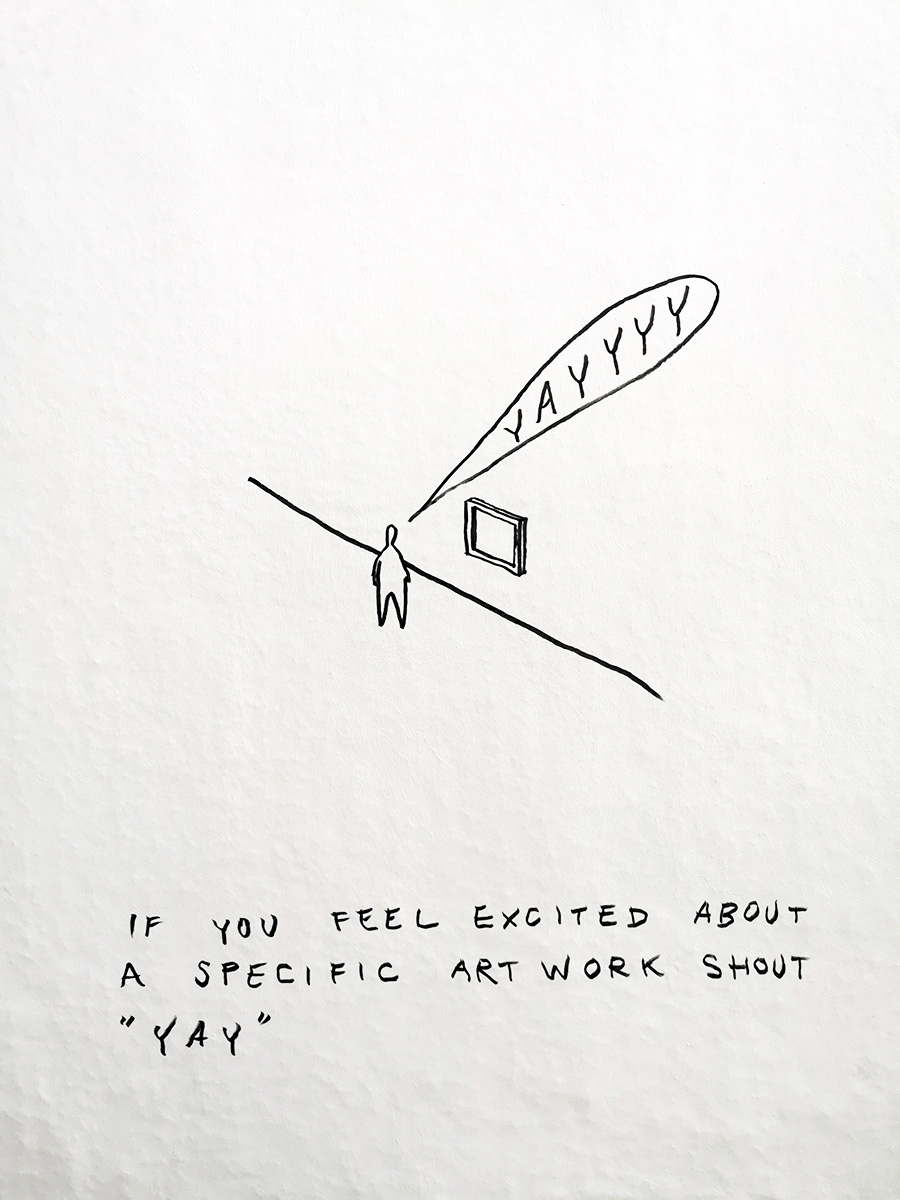 YAYYYYY
IF YOU FEEL EXCITED ABOUT
A SPECIFIC ART WORK SHOUT
"YAY"